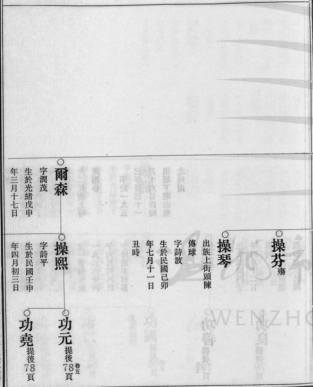 操芬
操琴
出族上街頭陳
傳球
字詩波
生於民國己卯
年七月十一日
丑時
爾森
字潤茂
生於光緒戊申
年三月十七日
操熙
字詩平
生於民國壬申
年四月初三日
功元 卷五 提後78頁
功堯 提後78頁
WENZHO